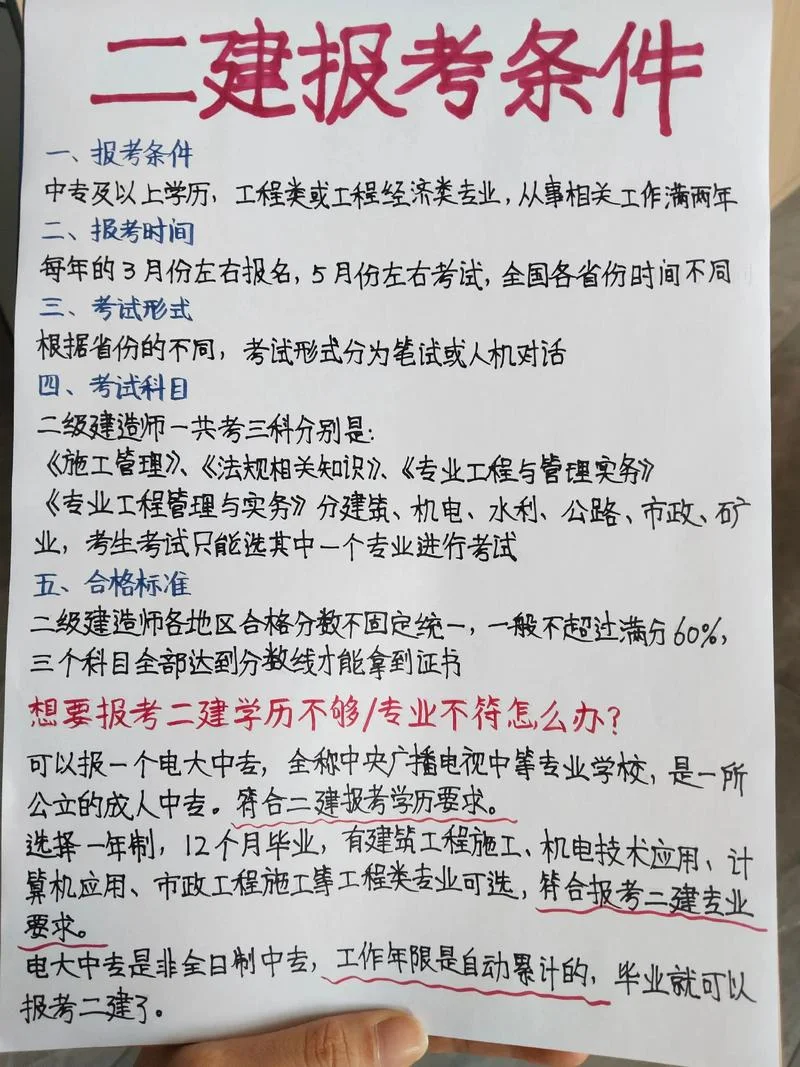 二建报考条件
一、报考条件
中专及以上学历，工程类或工程经济类专业，从事相关工作满两年
二、报考时间
每年的3月份左右报名，5月份左右考试，全国各省份时间不同
三、考试形式
根据省份的不同，考试形式分为笔试或人机对话
四、考试科目
二级建造师一共考三科分别是：
《施工管理》、《法规相关知识》、《专业工程与管理实务》
《专业工程管理与实务》分建筑、机电、水利、公路、市政、矿
业，考生考试只能选其中一个专业进行考试
五、合格标准
二级建造师各地区合格分数不固定统一，一般不超过满分60%，
三个科目全部达到分数线才能拿到证书
想要报考二建学历不够/专业不符怎么办？
可以报一个电大中专，全称中央广播电视中等专业学校，是一所
公立的成人中专。符合二建报考学历要求。
选择一年制，12个月毕业，有建筑工程施工、机电技术应用、计
算机应用、市政工程施工等工程类专业可选，符合报考二建专业
要求。
电大中专是非全日制中专，工作年限是自动累计的，毕业就可以
报考二建了。